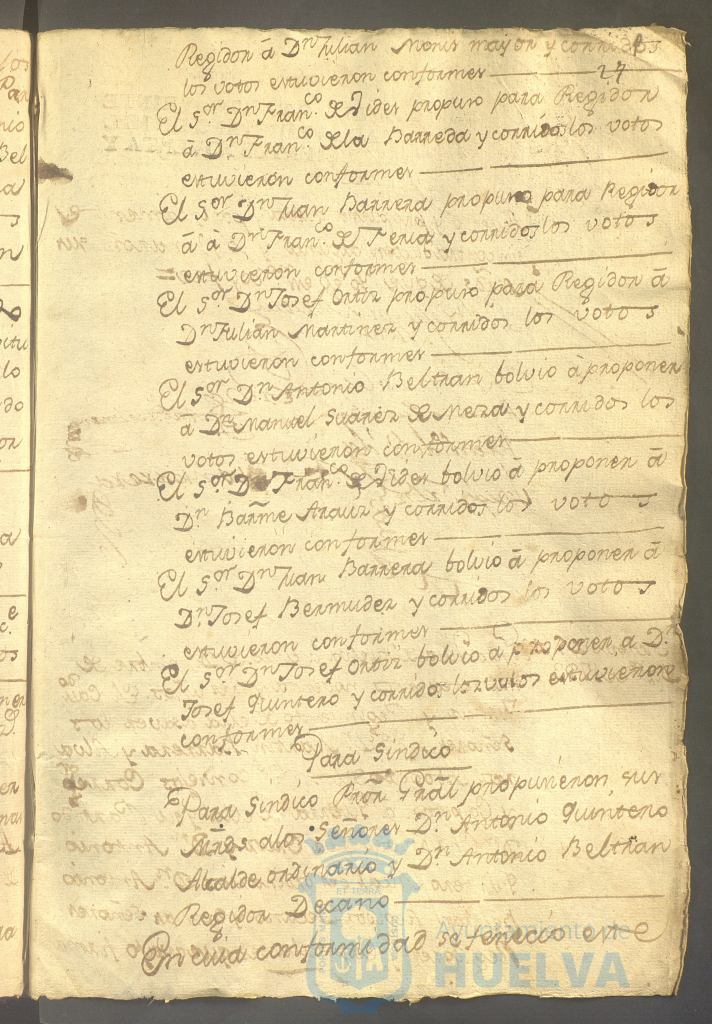 Regidor â Dn Julian Monis mayor y corridos
los votos estuvieron conformes 24
El sor Dn Franco de Jides propuso para Regidor
â Dn Franco de la Barreda y corridos los votos
estuvieron conformes
El sor Dn Juan Barrera propuso para Regidor
â â Dn Franco de Feria y corridos los votos
estuvieron conformes
El sor Dn Josef Ortiz propuso para Regidor â
Dn Julian Martinez y corridos los votos
estuvieron conformes
El sor Dn Antonio Beltran bolvio â proponer
â Dn Manuel Suarez de Meza y corridos los
votos estuvieron conformes
El sor Dn Franco de Jides bolvio â proponer â
Dn Barme Arauz y corridos los votos
estuvieron conformes
El sor Dn Juan Barrera bolvio â proponer â
Dn Josef Bermudez y corridos los votos
estuvieron conformes
El sor Dn Josef Ortiz bolvio â proponer a D.
Josef Quintero y corridos los votos estuvieron
conformes
Para Sindico
Para Sindico Pror Gral propusieron sus
Mrds a los Señores Dn Antonio Quintero
Alcalde ordinario y Dn Antonio Beltran
Regidor Decano
En cuia conformidad se fenecio este
Ayuntamiento de
HUELVA